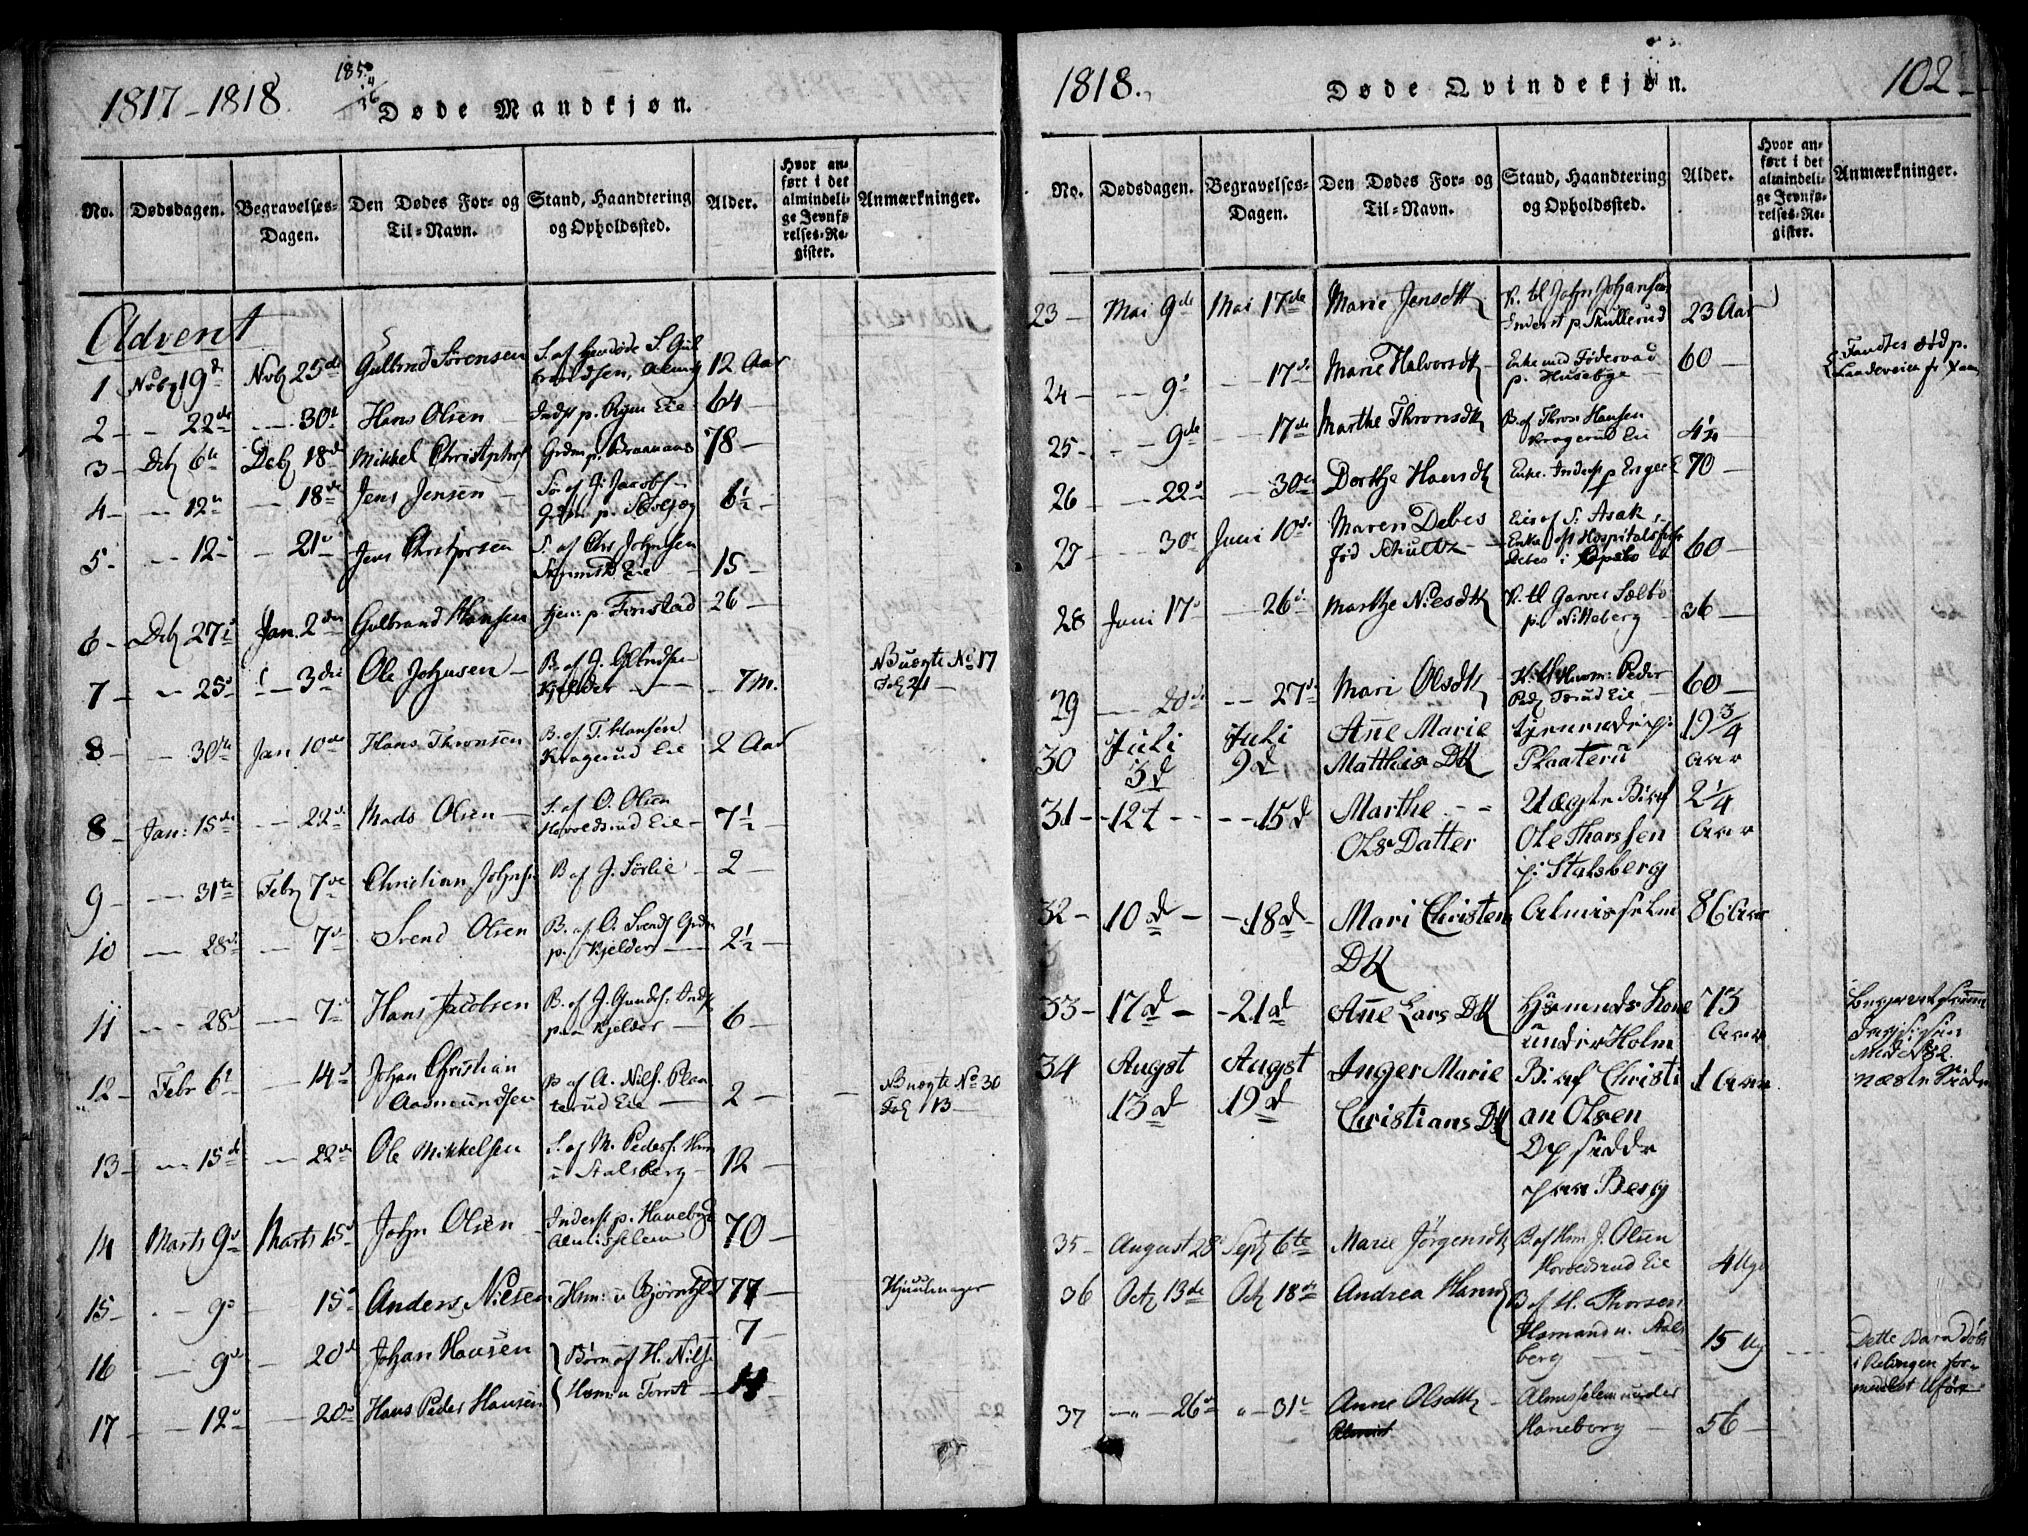 1817-1818.
Døde Mandkjøn.
No. Dødsdagen. Begravelses-Dagen. Den Dødes For- og Til-Navn. Stand, Haandtering og Opholdssted. Alder. Hvor anført i det almindelige Jevnførelses-Register. Anmærkninger.
Advent
1 Novbr 19d Novb 25de Gulbrnd Sørensen S. af 12 Aar
2 22de 30t Hans Olsen Indst p. Eie 64
3 Deb 6te Debr 18d Mikkel Christophers Grdm p. 78
4 12te 18de Jens Jensen Sø. af J. Jacobs. 6½
5 12 21 Jens Christophersen S. af Chr Johnsen Eie 15
6 Deb 27d Jan. 2den Gulbrand Hansen tjen: p. Fonstad 26
7 25d 3die Ole Johnsen B. af J. Kjelder 7 m. NB uægte No 17
8 30te Jan 10de Hans Thronsen B. af T. Hansen Kragerud Eie 2 Aar
8 Jan: 15de 22de Mads Olsen S. af O. Olsen Hovoldsrud Eie 7½
9 31te Febr 7de Christian Johnsen B af J. Sørlie 2
10 28d 7d Svend Olsen B. af O. Svends Grdm p. Kjelder 2½
11 28d 7d Hans Jacobsen B. af J. Gunders. Indst paa Kjelder 6
12 Febr 6t 14d Johan Christian Aasmundsen B af A. Nils. Planterud Eie 2 NB uægte No 30 Fol 113
13 15de 22de Ole Mikkelsen S. af M. Peders. Hm u Stalsberg 12
14 Marts 9d Marts 15d John Olsen Inderst p. Haneborg Almisselem 70
15 9d 15d Anders Nielsen Hm: u Bjørnholt 77 Hjuulmager
16 9de 20de Johan Hansen Børn af H. Nils. 7
17 12d 20d Hans Peder Hansen Hsm: u Torret
1818.
Døde Qvindekjøn.
102
No. Dødsdagen. Begravelses-Dagen. Den Dødes For- og Til-Navn. Stand, Haandtering og Opholdssted. Alder. Hvor anført i det almindelige Jevnførelses-Register. Anmærkninger.
23 Mai 9de Mai 17de Marie Jensdtr K. til John Johansen Inderst p. Skullerud 23 Aar
24 9d 17de Marie Halvorsdtr Enke med Føderaad p. Husebye 60 Fandtes død p. Landeveien
25 9de 17de Marthe Thronsdtr B. af Thron Hansen Kragerud Eie
26 22d 30te Dorthe Hansdtr Enke. Inderst p 70
27 30te Juni 10de Maren Debes fød Schultz Eier af S. Asak Enke eft Hospitalsfor Debes i Opslo 60
28 Juni 17d 26d Marthe Nilsdtr K. til Garver Sælbo p. Nitteberg 36
29 20de 27d Mari Olsdtr K. til Huusm: Peder Eie 60
30 Juli 3d Juli 9d Ane Marie Matthis Dtr tjenende p: Plaaterud 19 3/4 Aar
31 12t 15d Marthe Ols Datter Uægte B: af Ole Tharssen p: Stalsberg 2 1/4 Aar
32 10d 18d Mari Christens Dtr Almisselem 86 Aar
33 17d 21d Ane Lars Dtr Huusmands Kone under Holm 73 Aar
34 Augst 13d Augst 19d Inger Marie Christians Dtr B: af Christian Olsen Opsidder paa Berg 1 Aar
35 August 28 Sept 6te Marie Jørgensdtr B. af Hsm J. Olsen Hovoldsrud Eie 4 Ug:
36 Octr 13de Oct 18de Andrea Hansdtr B af H. Thorsen Husmand u. Stalsberg 15 Ug Dette Barn døbt i Rælingen formedelst Uføre
37 26d 31t Anne Olsdtr Almisselem under Haneborg 56